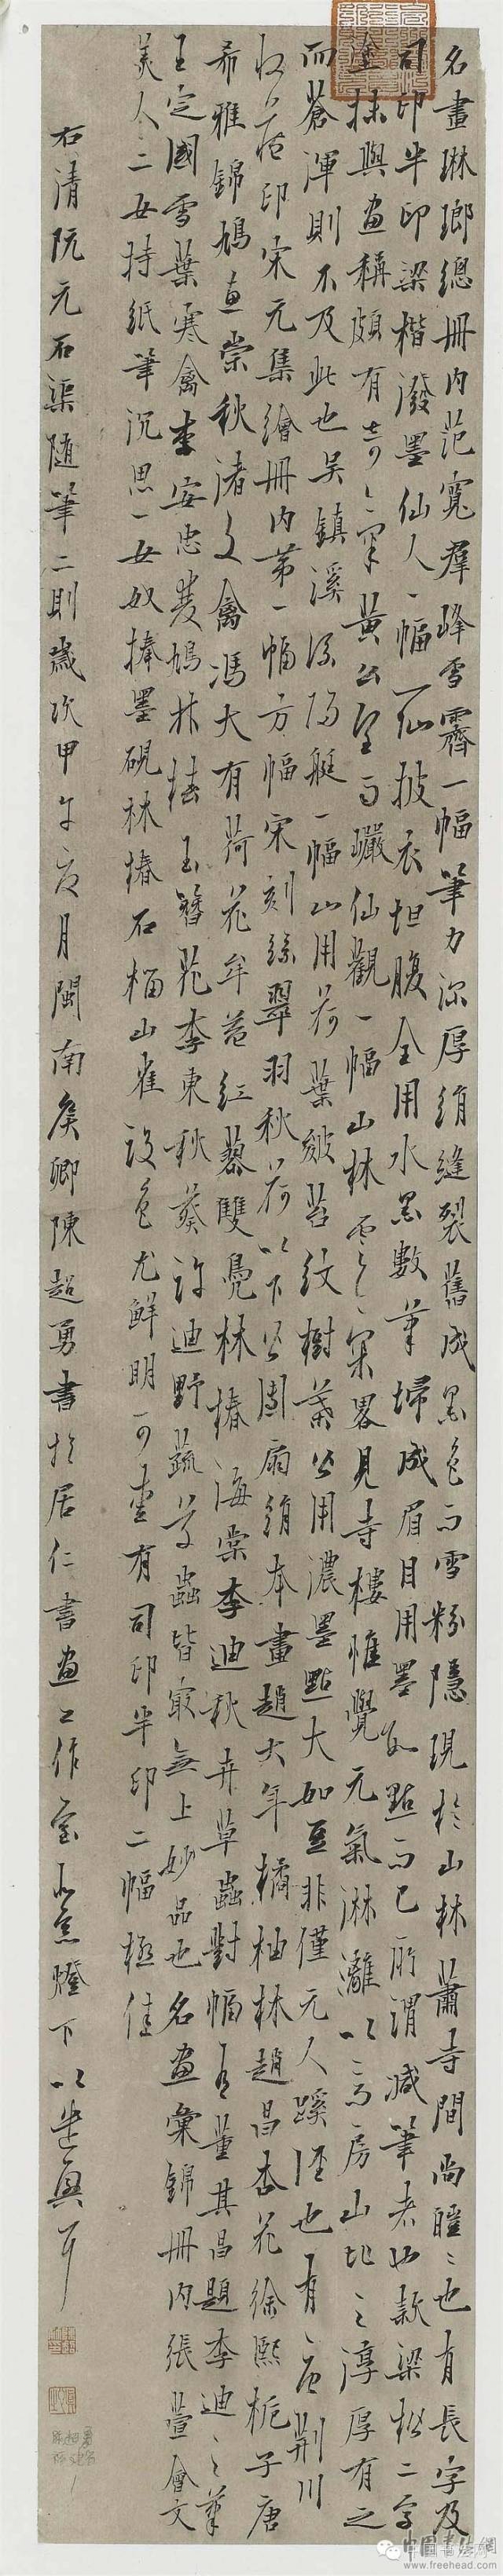 名畫琳瑯總冊內范寬群峰雪霽一幅筆力深厚絹縫裂舊成黑色而雪粉隱現於山林蕭寺間尚曈曈也有長字及
司印半印梁楷潑墨仙人一幅一仙披衣坦腹全用水墨數筆埽成眉目用墨點而已所謂減筆者也款梁楷二字
塗抹與畫稱頗有奇氣黃公望 巖仙觀一幅山林 畧見寺樓惟覺元氣淋灕以之房山比之淳厚有之
而蒼渾則不及此也吳鎮溪 艇一幅山用荷葉皴苔紋樹葉 用濃墨點大如豆非僅元人蹊徑也有 荊川
收 印宋元集繪冊內第一幅方幅宋刻絲翠羽秋荷以下 團扇絹本畫趙大年橘柚林趙昌杏花徐熙梔子唐
希雅錦鳩 崇秋渚文禽馮大有荷花牟益紅蓼雙鳧林椿海棠李迪秋卉草蟲對幅有董其昌題李迪之筆
王定國雪葉寒禽李安忠 鳩林椿玉簪花李東秋葵許迪野蔬草蟲皆最無上妙品也名畫彙錦冊內張萱會文
美人二女持紙筆沉思一女奴捧墨硯林椿石榴山雀設色尤鮮明可 有司印半印二幅極佳
右清阮元石渠隨筆二則歲次甲午 月閩南侯卿陳超勇書於居仁書畫工作室 燈下以遣興耳
中国书法网
www.freehead.com